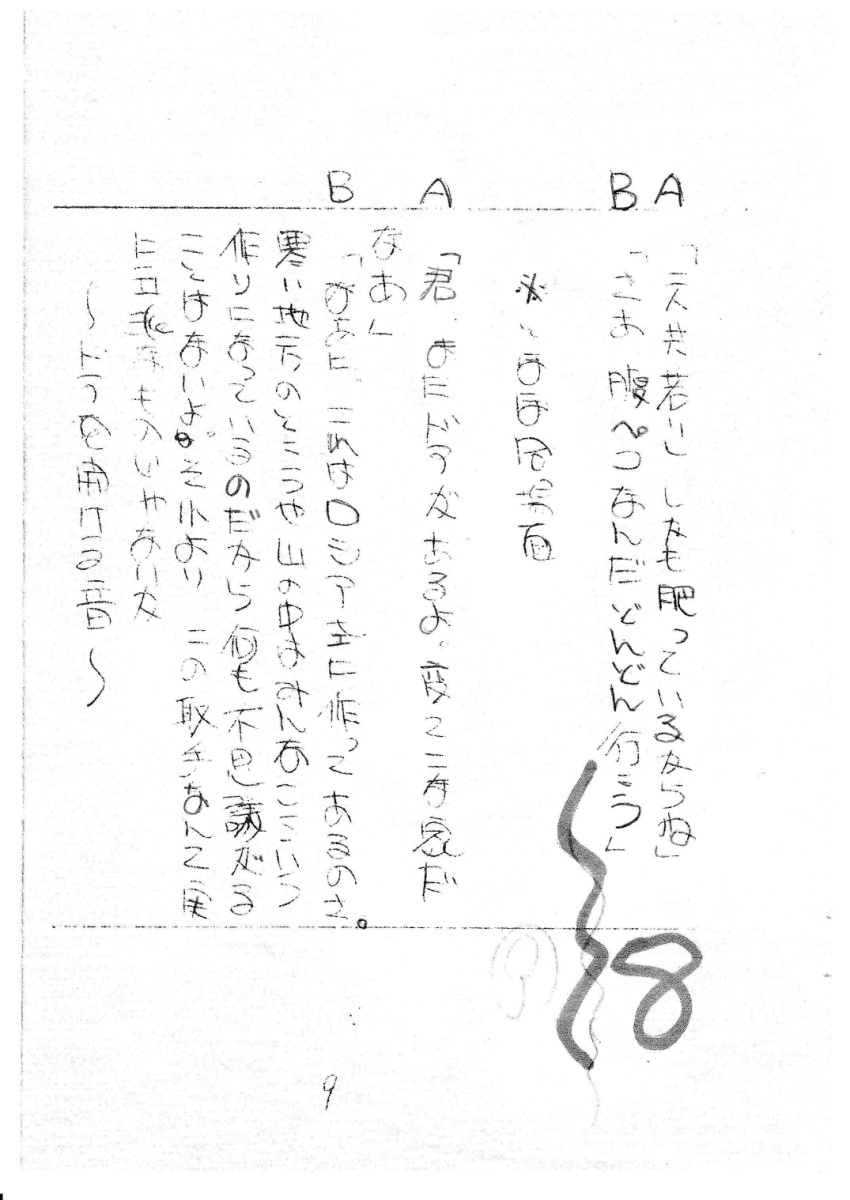 A 「二人共若いし しかも肥っているからね」
B 「さあ 腹ペコなんだどんどん行こう」
8
※いほほ 場面
A 「君、またドアがあるよ。変てこな家だ
なあ」
B 「なあに、これはロシア式に作ってあるのさ。
寒い地方のところや山の中はみんなこういう
作りになっているのだから何も不思議がる
ことはないよ。それより この取手なんて実
に立派なものじゃないか
〜ドアを開ける音〜
9